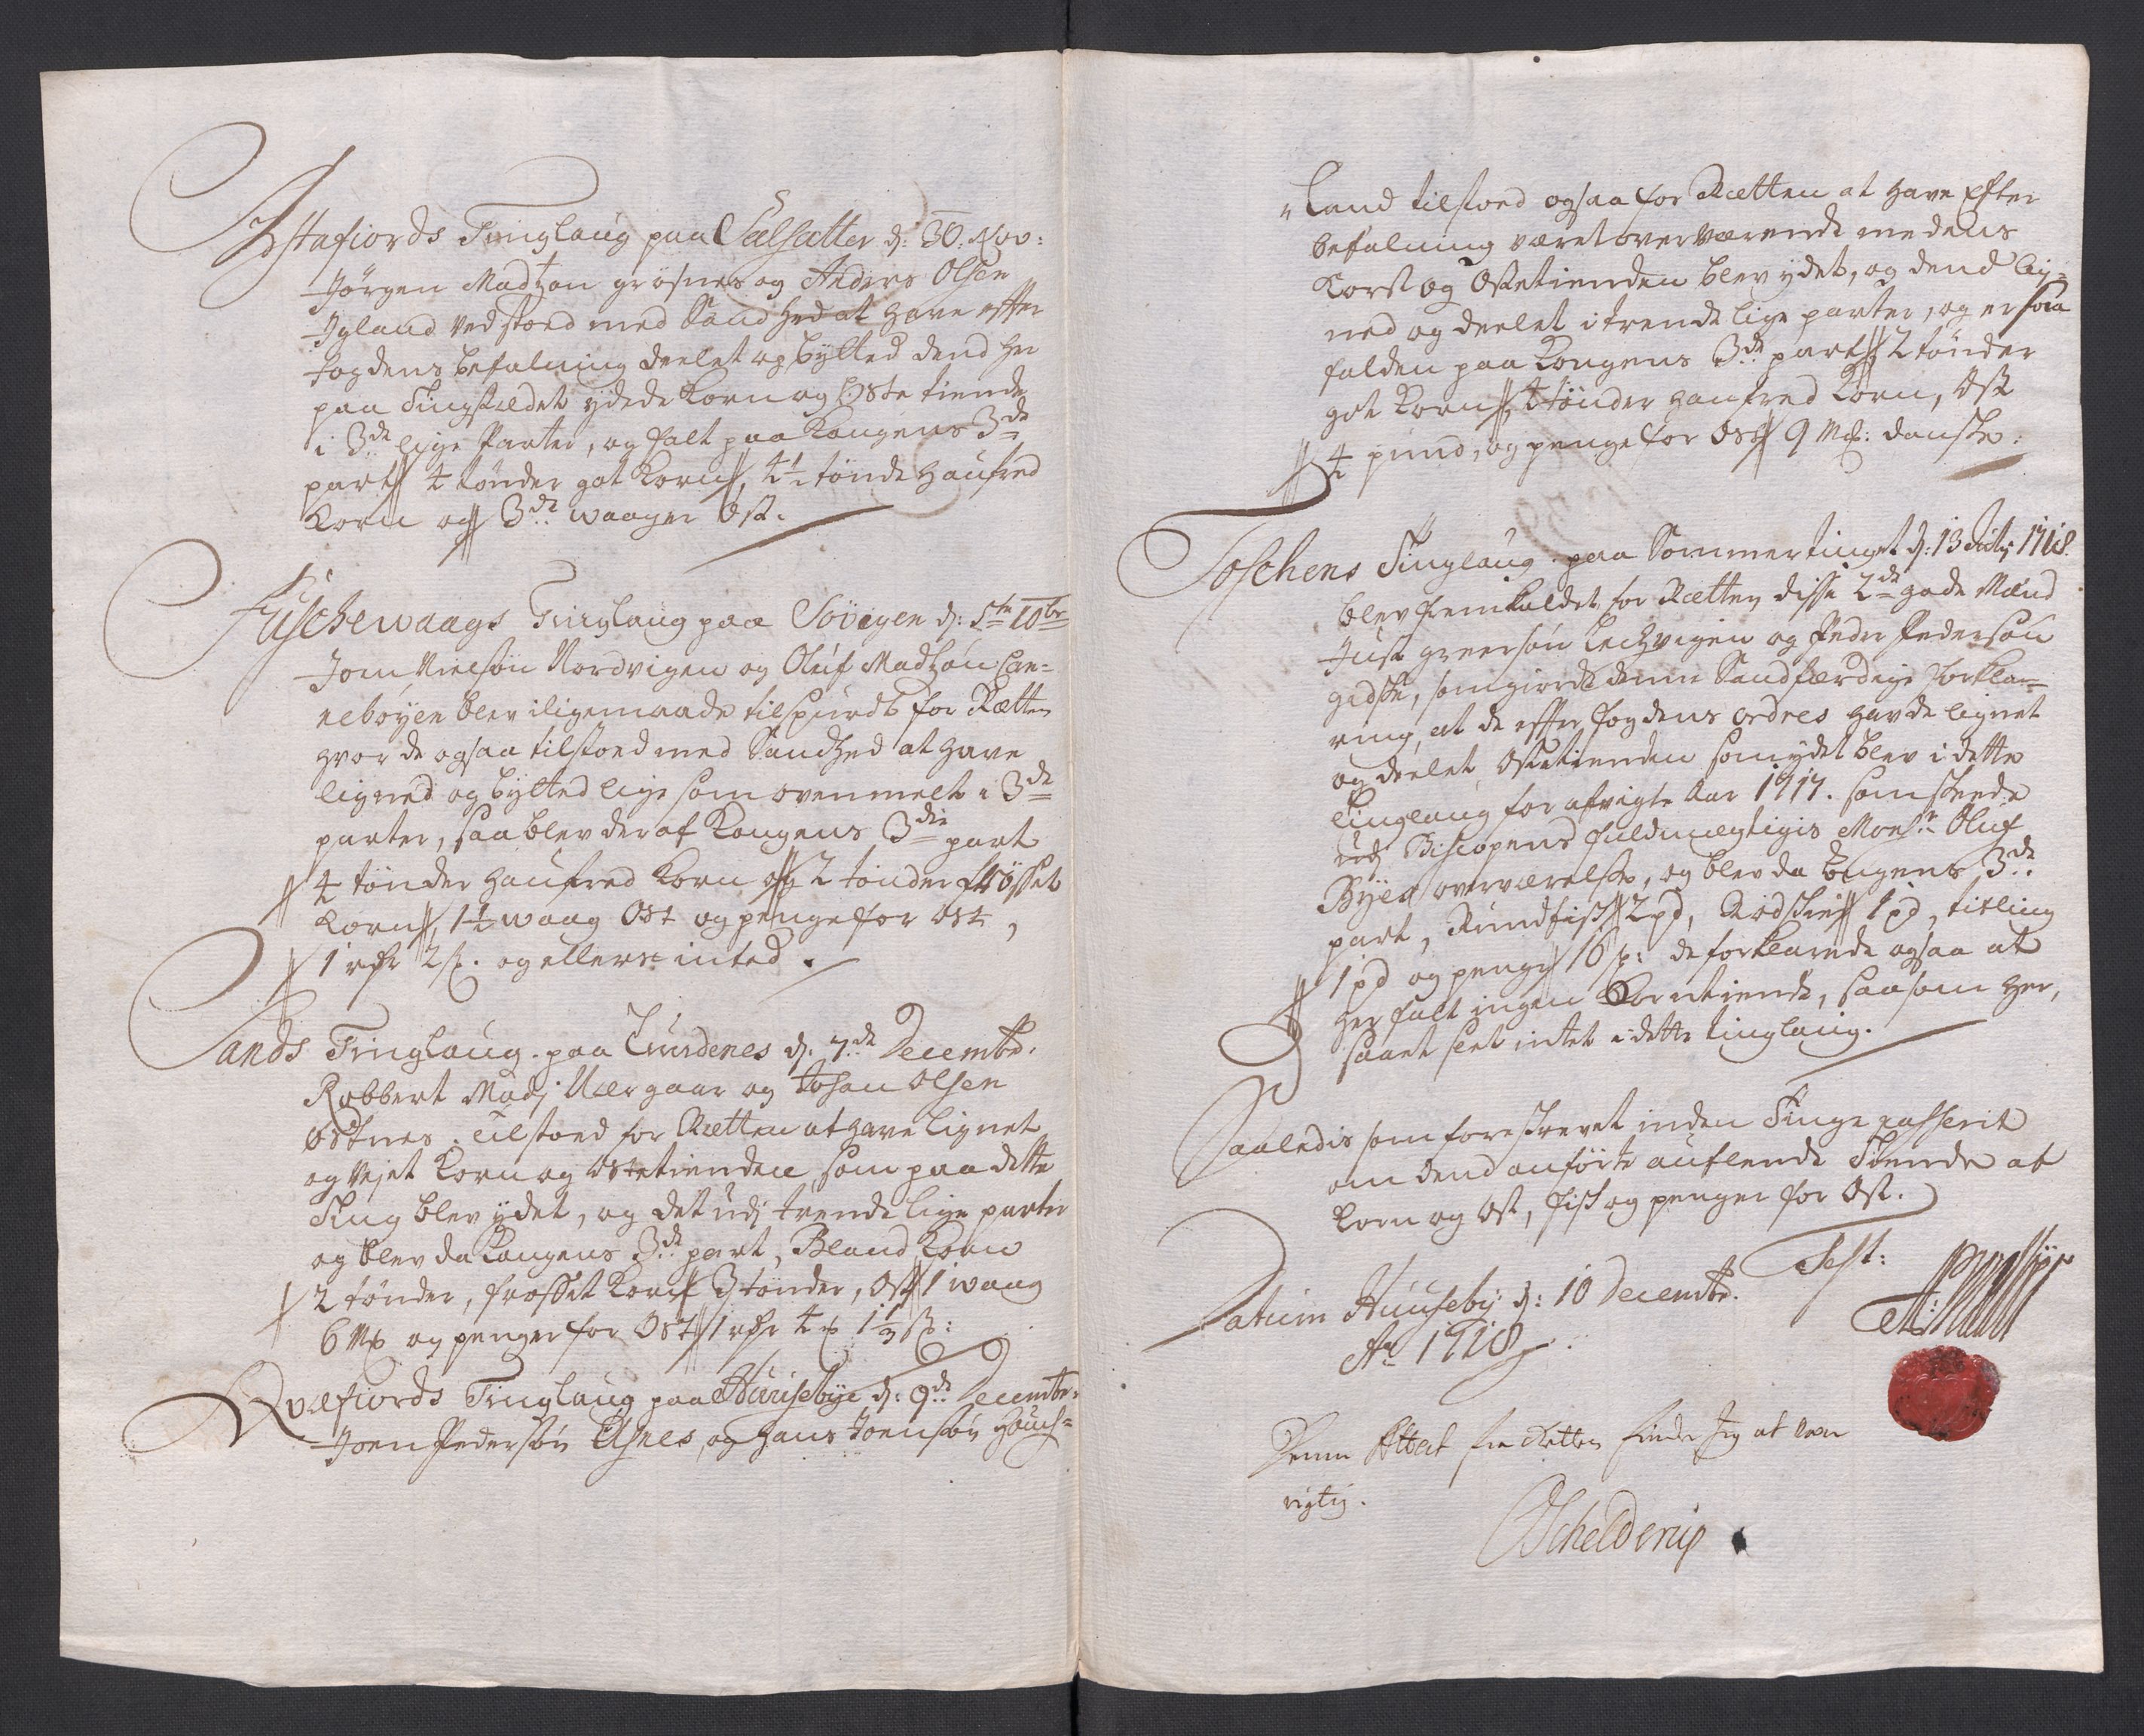 Astafiords Tinglaug paa Sælsætter d: 30. Nov:
Jørgen Madtzøn grøsnes og Anders Olsen
Igland Ved stoed med Sandhed at have effter
fogdens befalning deelet og bÿtted dend her
paa Tingstædet ÿdede Korn og Oste tiende
i 3de lige Parter, og falt paa Kongens 3de
part 4 tønder got Korn, 4½ tønde haufred
Korn og 3de waager Ost.
Fuschewaags Tinglaug paa Søvigen d: 5te 10br
Joen Nielsøn Nordvigen og Oluf Madtzøn
nebøÿen blev iligemaade tilspurdt for Rætten
hvor de ogsaa tilstoed med Sandhed at have
ligned og bÿtted lige som ovenmelt i 3de
parter, saa blev der af Kongens 3die part
4 tønder haufred Korn og 2 tønder frosset
Korn, 1½ waag Ost og penge for Ost,
1 rdr 2 s. og ellers inted.
Sands Tinglaug paa d. 7de Decembr.
Robbert Madz Ulergaar og Johan Olsen
Østnes. tilstoed for Rætten at have lignet
og Vejet Korn og Ostetienden som paa dette
Ting blev ÿdet, og det udj trende lige parter
og blev da Kongens 3de part, Bland Korn
2 tønder, frosset Korn 3 tønder, Ost 1 waag
6 Mk og penger for Ost 1 rdr 4 1⅓ s:
Qvæfiords Tinglaug paa Huusebÿe d: 9de Decembr.
Joen Pedersøn Elsnes, og Hans Joensøn
land tilstoed ogsaa for Rætten at have Efter
befalning været overværende medens
Korn og Ostetienden blev ÿdet, og dend lig-
ned og deelet i trende lige parter, og er saa
falden paa Kongens 3de part 2 tønder
got Korn, 4 tønder haufred Korn, Ost
4 pund, og penge for Ost 9 Mk: danske.
Toschens Tinglaug paa Sommertinget d: 13 July 1718.
blev fremkaldet for Rætten disse 2de gode Mænd
Just greersøn Lechvigen og Peder Pedersøn
gidske, som giorde denne Sandfærdige forkla-
ring, at de effter fogdens ordres havde lignet
og deelet Ostetienden som ÿdet blev i dette
tinglaug for afvigte Aar 1717. som skeede
udj Biscopens fuldmegtigis Monsr Oluf
Bÿes overværelse, og blev da Kongens 3de
part, Rundfisk 2 pd, Rødskier 1 pd, titling
1 pd og penge 16 s: de forklarede ogsaa at
her falt ingen Korntiende, saasom her,
saaet slet intet i dette tinglaug.
Saaledis som foreskrevet inden Tinge passerit
om dend anførte auflende Tiende at
Korn og Ost, fisk og penger for Ost.
Test:
Datum Huusebÿ d: 10 Decembr.
Ao 1718
Denne Attest fra Retten finder Jeg at være
rigtig.
Schelderup